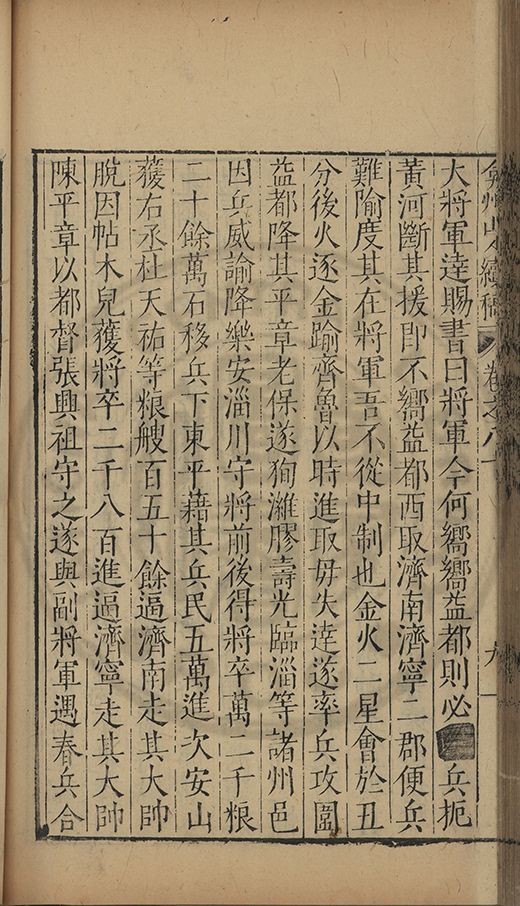 弇州山人續稿 卷之八十 九
大將軍達賜書曰將軍今何嚮嚮益都則必兵扼
黃河斷其援即不嚮益都西取濟南濟寧二郡便兵
難隃度其在將軍吾不從中制也金火二星會於丑
分後火逐金踰齊魯以時進取毋失達遂率兵攻圍
益都降其平章老保遂狥濰膠壽光臨淄等諸州邑
因兵威諭降樂安淄川守將前後得將卒萬二千粮
二十餘萬石移兵下東平藉其兵民五萬進次安山
獲右丞杜天祐等粮艘百五十餘逼濟南走其大帥
脫因帖木兒獲將卒二千八百進逼濟寧走其大帥
陳平章以都督張興祖守之遂與副將軍遇春兵合